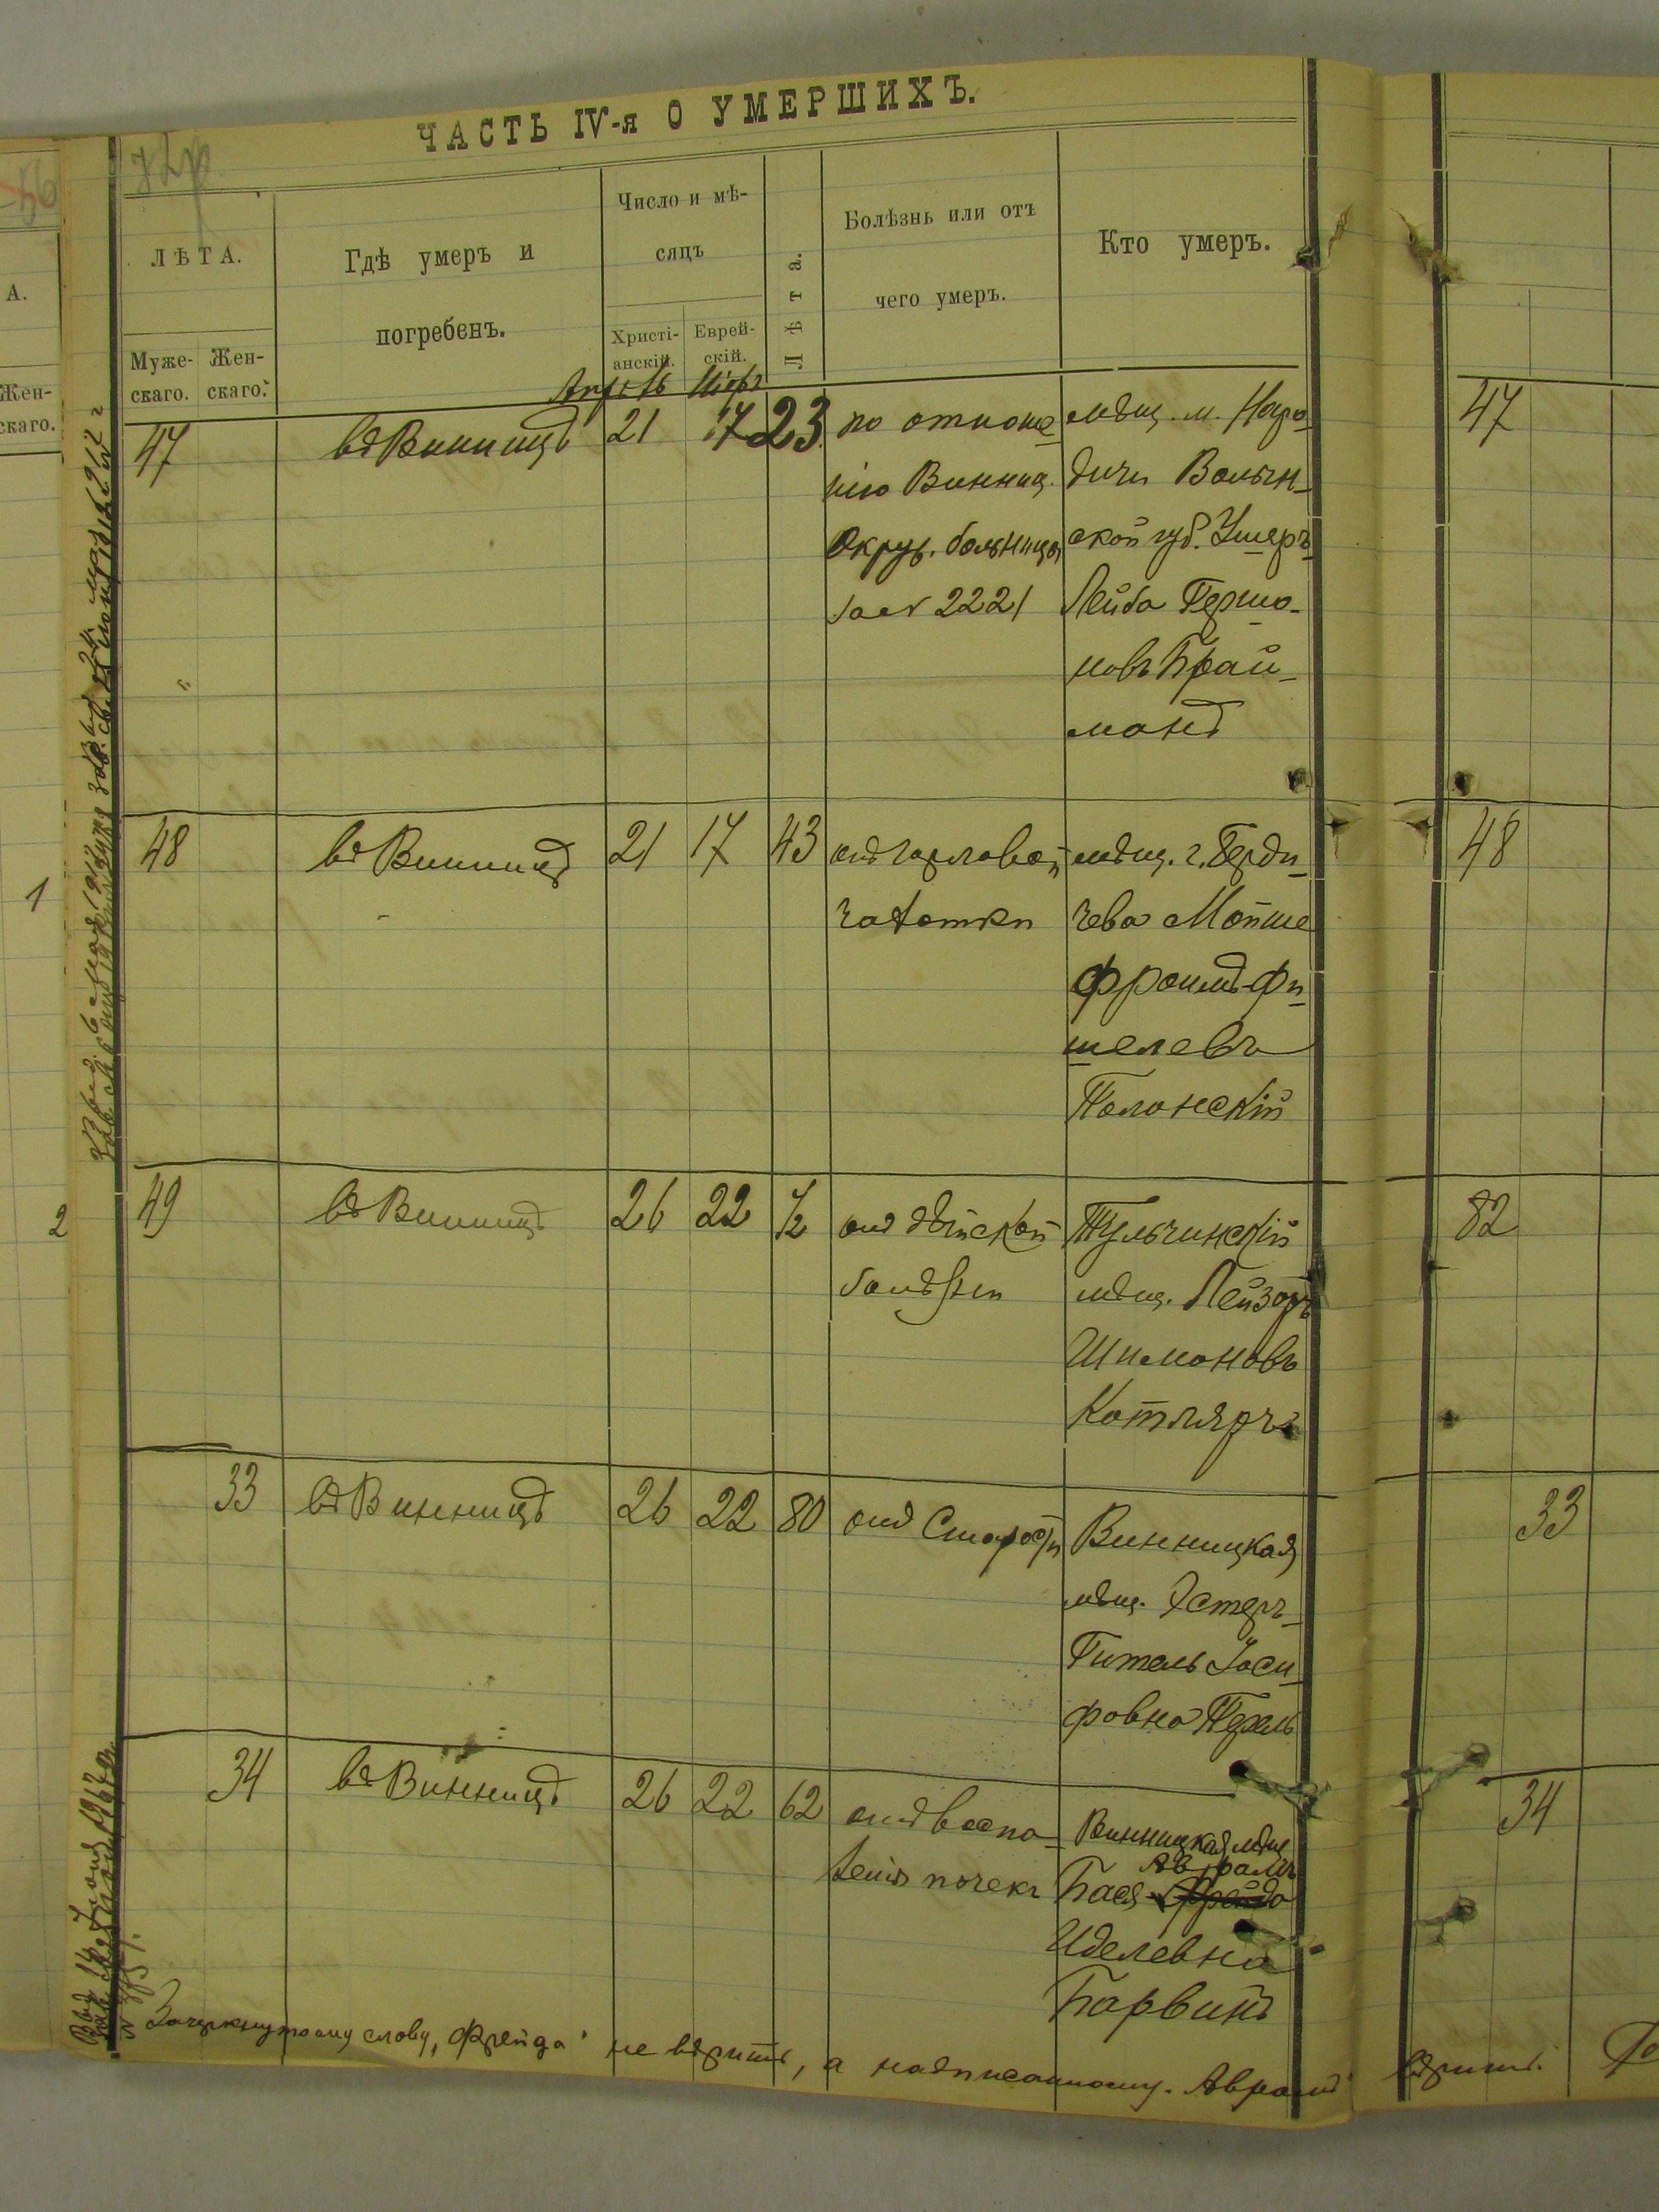 ЧАСТЬ IV-я О УМЕРШИХЪ.
ЛѢТА.
Муже-скаго.
Жен-скаго.
Гдѣ умеръ и
погребенъ.
Число и мѣ-
сяцъ
Христі-анскій.
Еврей-скій.
Лѣта.
Болѣзнь или отъ
чего умеръ.
Кто умеръ.
А.
Жен-
скаго.
Апрѣль
47
въ Винницѣ
21
17
23
по отноше-
нію Винниц.
Окруж. больницы
за № 2221
мѣщ. м. Наро-
дичи Волын-
ской губ. Ушеръ-
Лейба Гершо-
новъ Брай-
манъ
47
48
въ Винницѣ
21
17
43
отъ горловой
чахотки
мѣщ. г. Берди-
чева Мойше
Фроимъ Фи-
шелевъ
Полонскій
48
49
въ Винницѣ
26
22
1/2
отъ дѣтской
болѣзни
Тульчинскій
мѣщ. Лейзоръ
Шимоновъ
Котляръ
82
33
въ Винницѣ
26
22
80
отъ Старости
Винницкая
мѣщ. Эстеръ-
Гитель Іоси-
фовна
33
34
въ Винницѣ
26
22
62
отъ воспа-
ленія почекъ
Винницкая мѣщ.
Авраамъ
Бася Фрейда
Иделевна
Барвинъ
34
Зачеркнутому слову, Фрейда не вѣрить, а надписанному. Авраамъ вѣрить.
1
2